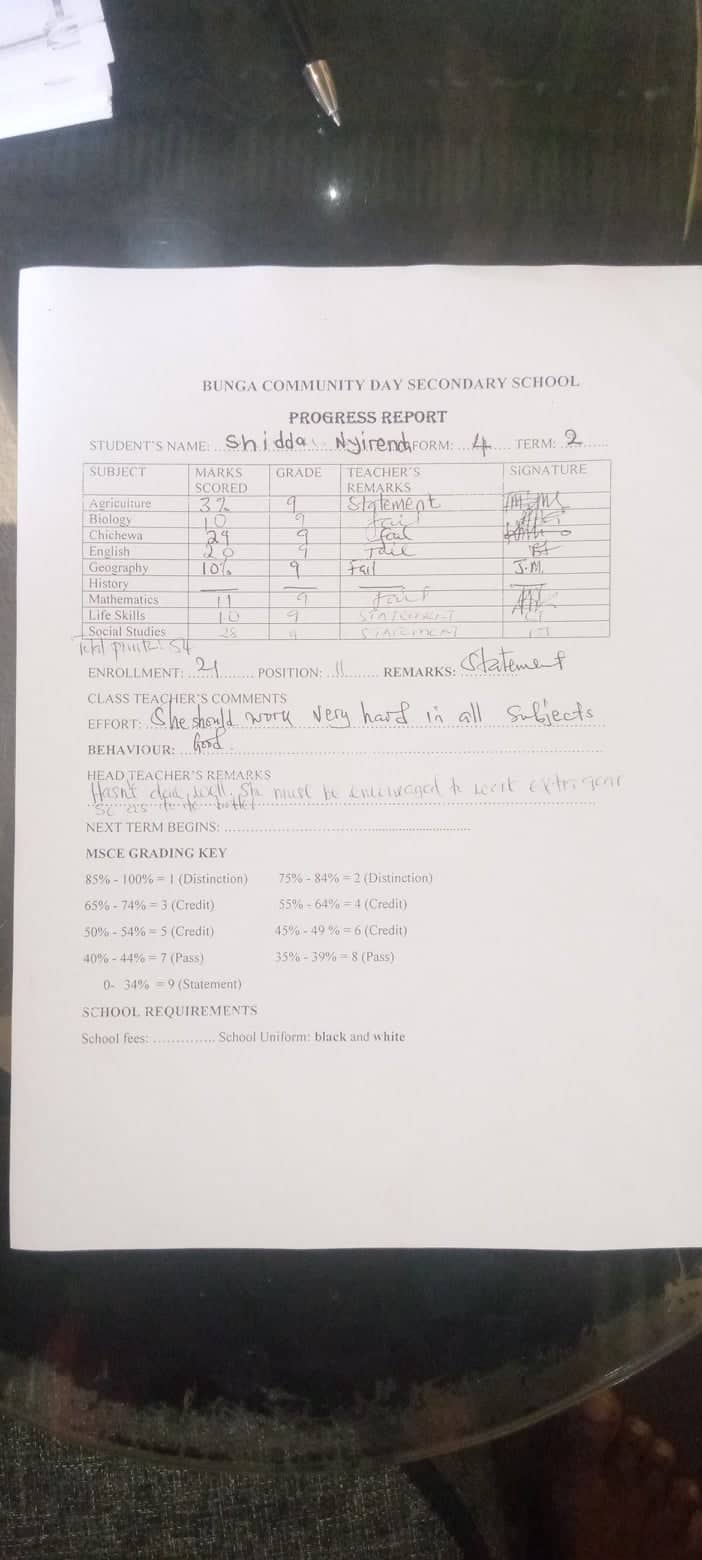 BUNGA COMMUNITY DAY SECONDARY SCHOOL
PROGRESS REPORT
STUDENT'S NAME: Shidda Nyirenda FORM: 4 TERM: 2
SUBJECT MARKS SCORED GRADE TEACHER'S REMARKS SIGNATURE
Agriculture 32 9 Statement
Biology 10 9 fail
Chichewa 29 9 fail
English 20 9 Fail
Geography 10% 9 Fail J.M.
History
Mathematics 11 9 fail
Life Skills 10 9 STATEMENT
Social Studies 28 9 STATEMENT
Total points: 54
ENROLLMENT: 21 POSITION: 11 REMARKS: Statement
CLASS TEACHER'S COMMENTS
EFFORT: She should work very hard in all subjects
BEHAVIOUR: Good
HEAD TEACHER'S REMARKS
Hasn't done well. She must be encouraged to work extra gear
so as to do better
NEXT TERM BEGINS:
MSCE GRADING KEY
85% - 100% = 1 (Distinction) 75% - 84% = 2 (Distinction)
65% - 74% = 3 (Credit) 55% - 64% = 4 (Credit)
50% - 54% = 5 (Credit) 45% - 49 % = 6 (Credit)
40% - 44% = 7 (Pass) 35% - 39% = 8 (Pass)
0- 34% = 9 (Statement)
SCHOOL REQUIREMENTS
School fees: .............. School Uniform: black and white